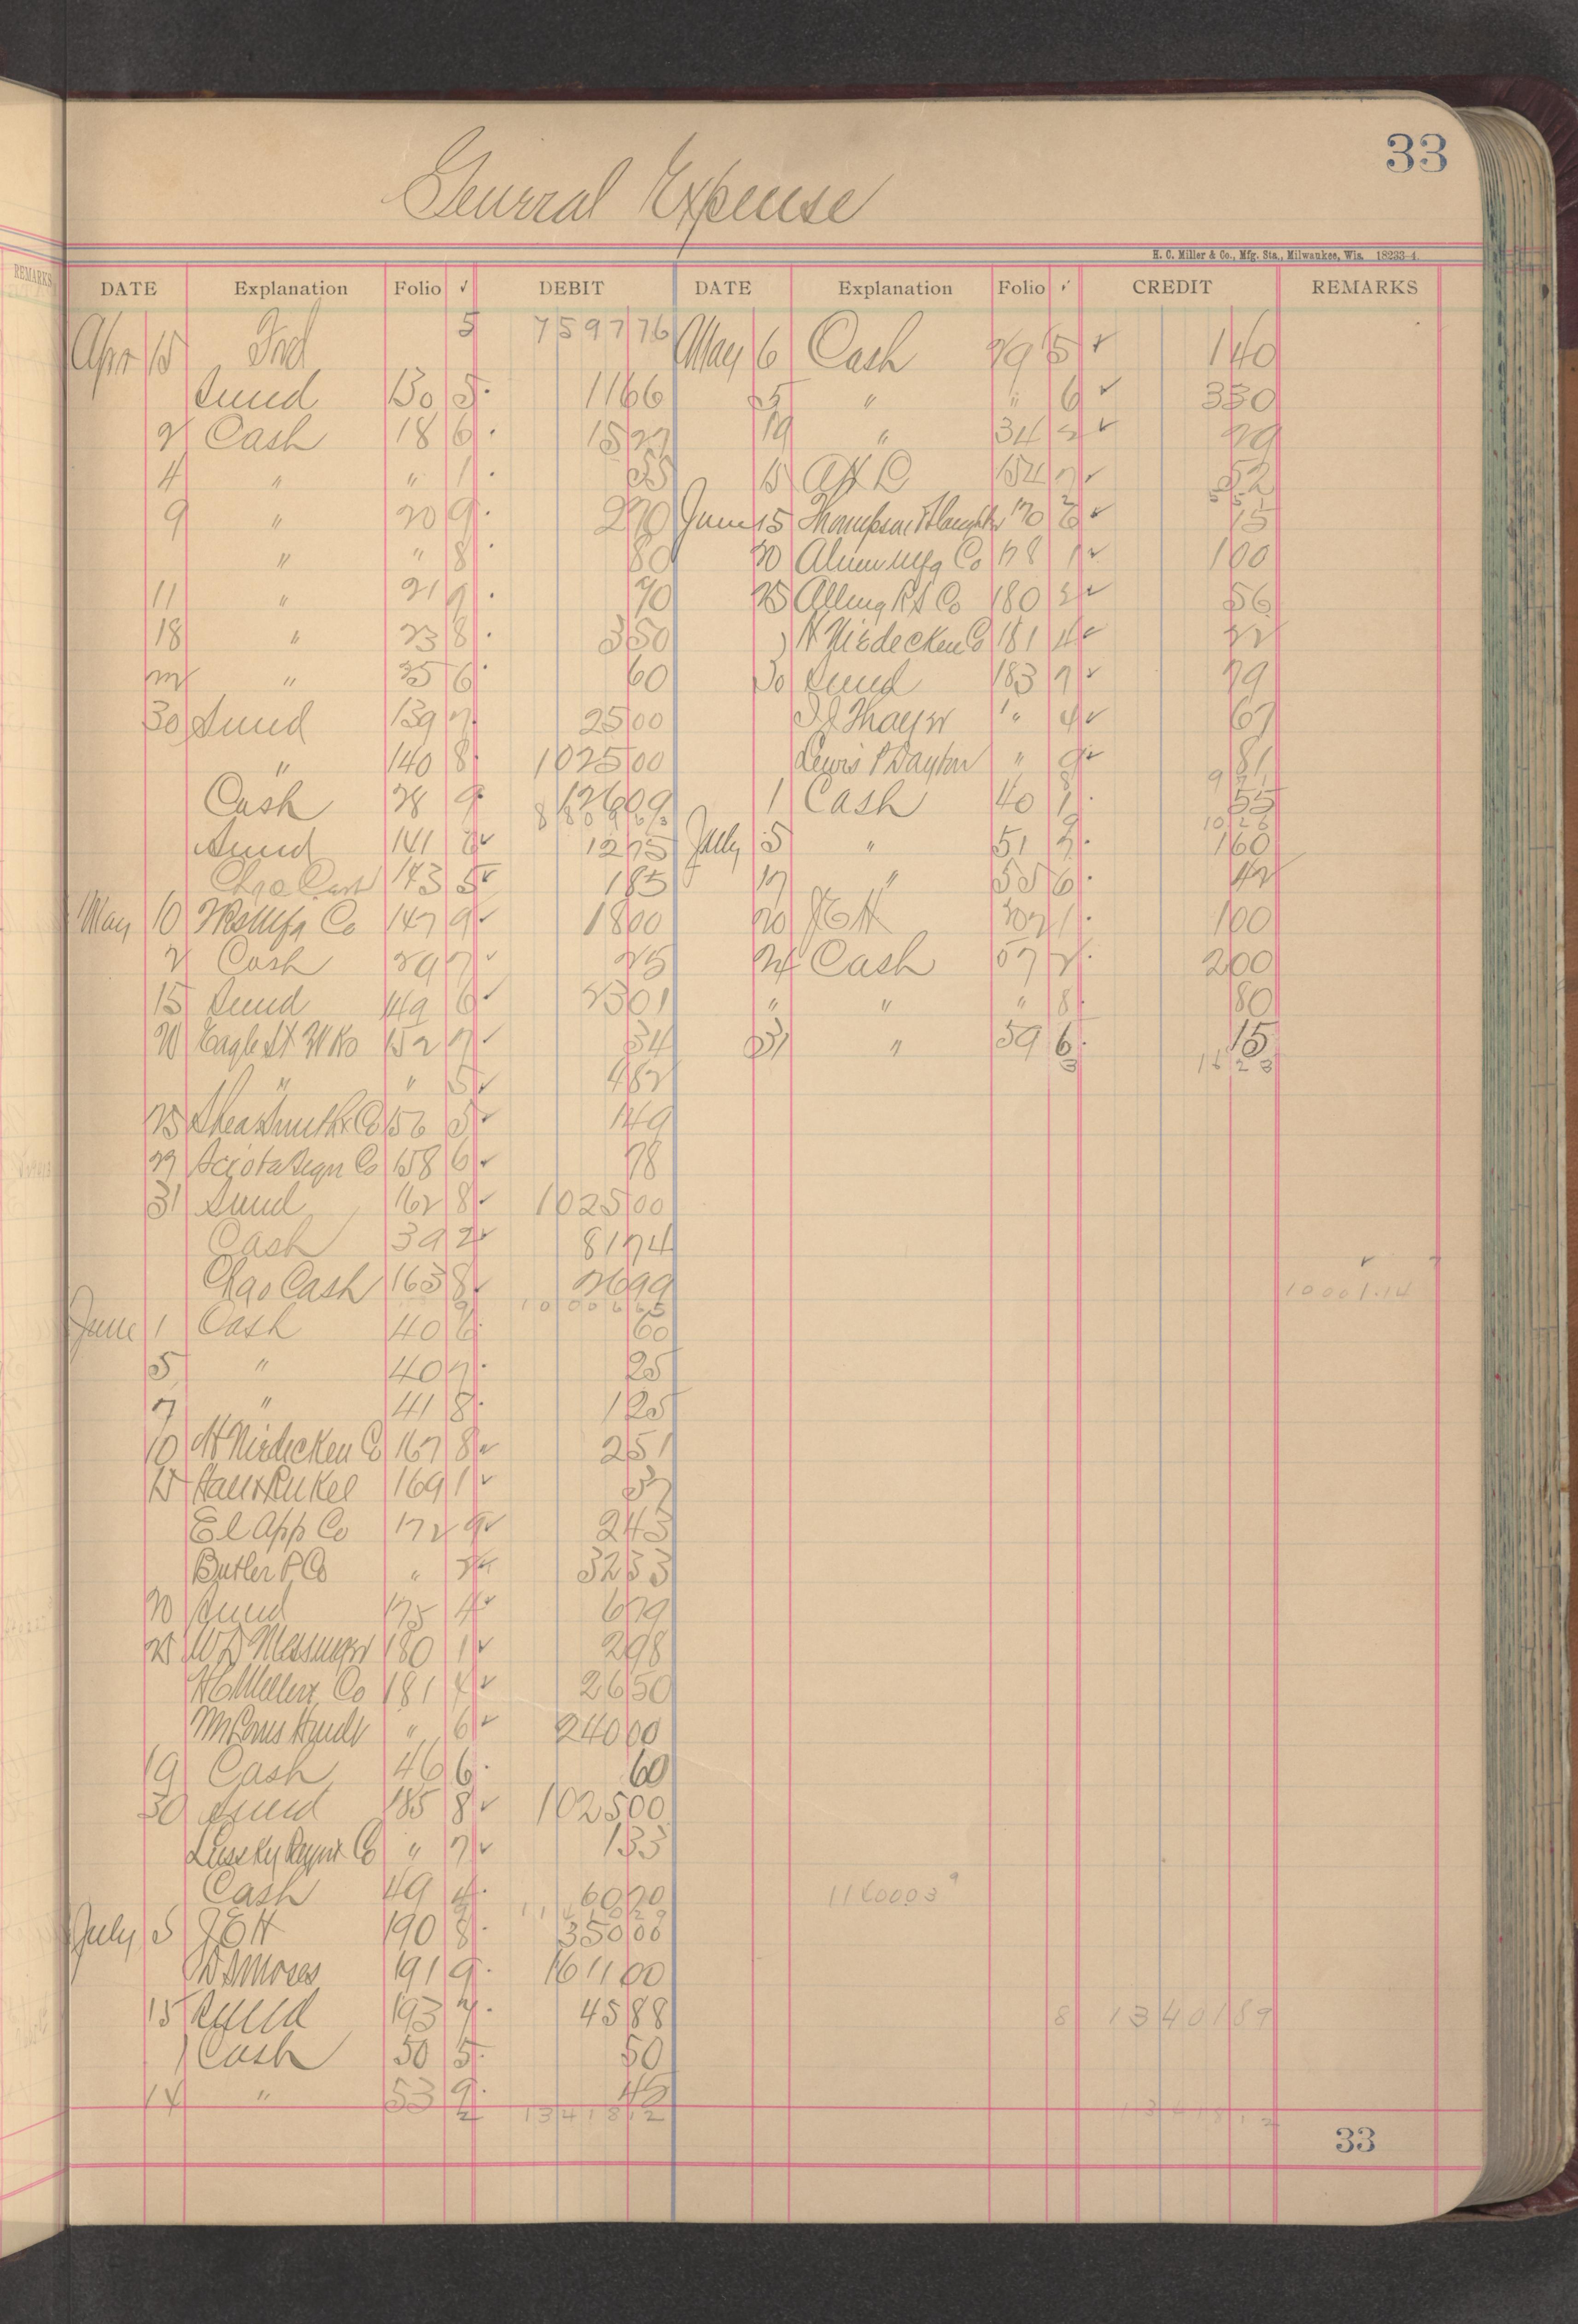 33
General Expense
H. C. Miller & Co., Mfg. Sta., Milwaukee, Wis. 18233-4.
REMARKS
DATE Explanation Folio ✓ DEBIT DATE Explanation Folio ✓ CREDIT REMARKS
Apr 15 Fwd 5 7597 76 May 6 Cash 29 5 ✓ 1 40
Sund 130 5 11 66 25 " " 6 ✓ 3 30
2 Cash 18 6 15 27 19 " 34 2 ✓ 29
4 " " 1 55 15 154 7 ✓ 52
9 " 20 9 2 70 June 15 Thompson 170 ✓ 15
" " 8 80 20 Alum Mfg Co 178 1 ✓ 1 00
11 " 21 9 70 25 Alling Co 180 ✓ 56
18 " 23 8 3 50 H Niedecken Co 181 4 ✓ 22
22 " 25 6 60 30 Sund 183 7 ✓ 79
30 Sund 139 7 25 00 Thayer " 4 ✓ 67
" 140 8 1025 00 Lewis P Dayton " 9 ✓ 81
Cash 28 9 126 09 1 Cash 40 1 55
Sund 141 ✓ 12 75 July 5 " 51 1 60
Chgo Cash 143 5 ✓ 1 85 17 " 55 6 42
May 10 Mfg Co 147 9 ✓ 18 00 20 JEH 207 1 1 00
2 Cash 29 7 ✓ 25 24 Cash 57 2 2 00
15 Sund 149 6 ✓ 23 01 " " " 8 80
20 Eagle Wks 152 7 ✓ 34 31 " 59 6 15
" " 5 ✓ 4 82
25 Shea Smith & Co 156 5 ✓ 1 49
29 Sciota Sign Co 158 6 ✓ 78
31 Sund 162 8 ✓ 1025 00
Cash 39 2 ✓ 81 74
Chgo Cash 163 8 ✓ 26 99 10001.14
June 1 Cash 40 6 60
5 " 40 7 25
7 " 41 8 1 25
10 H Niedecken Co 167 8 ✓ 2 51
15 169 1 ✓ 37
El App Co 172 9 ✓ 2 43
Butler P Co " ✓ 32 33
20 Sund 175 4 ✓ 6 79
25 W D Messinger 180 1 ✓ 2 98
H C Miller Co 181 4 ✓ 26 50
" 6 ✓ 240 00
19 Cash 46 6 60
30 Sund 185 8 ✓ 1025 00
Co " 7 ✓ 1 33
Cash 49 4 60 70
July 5 JEH 190 8 350 00
Moses 191 9 1611 00
15 Sund 193 7 45 88 8 13401 89
1 Cash 50 5 50
14 " 53 9 45
13418 12
33